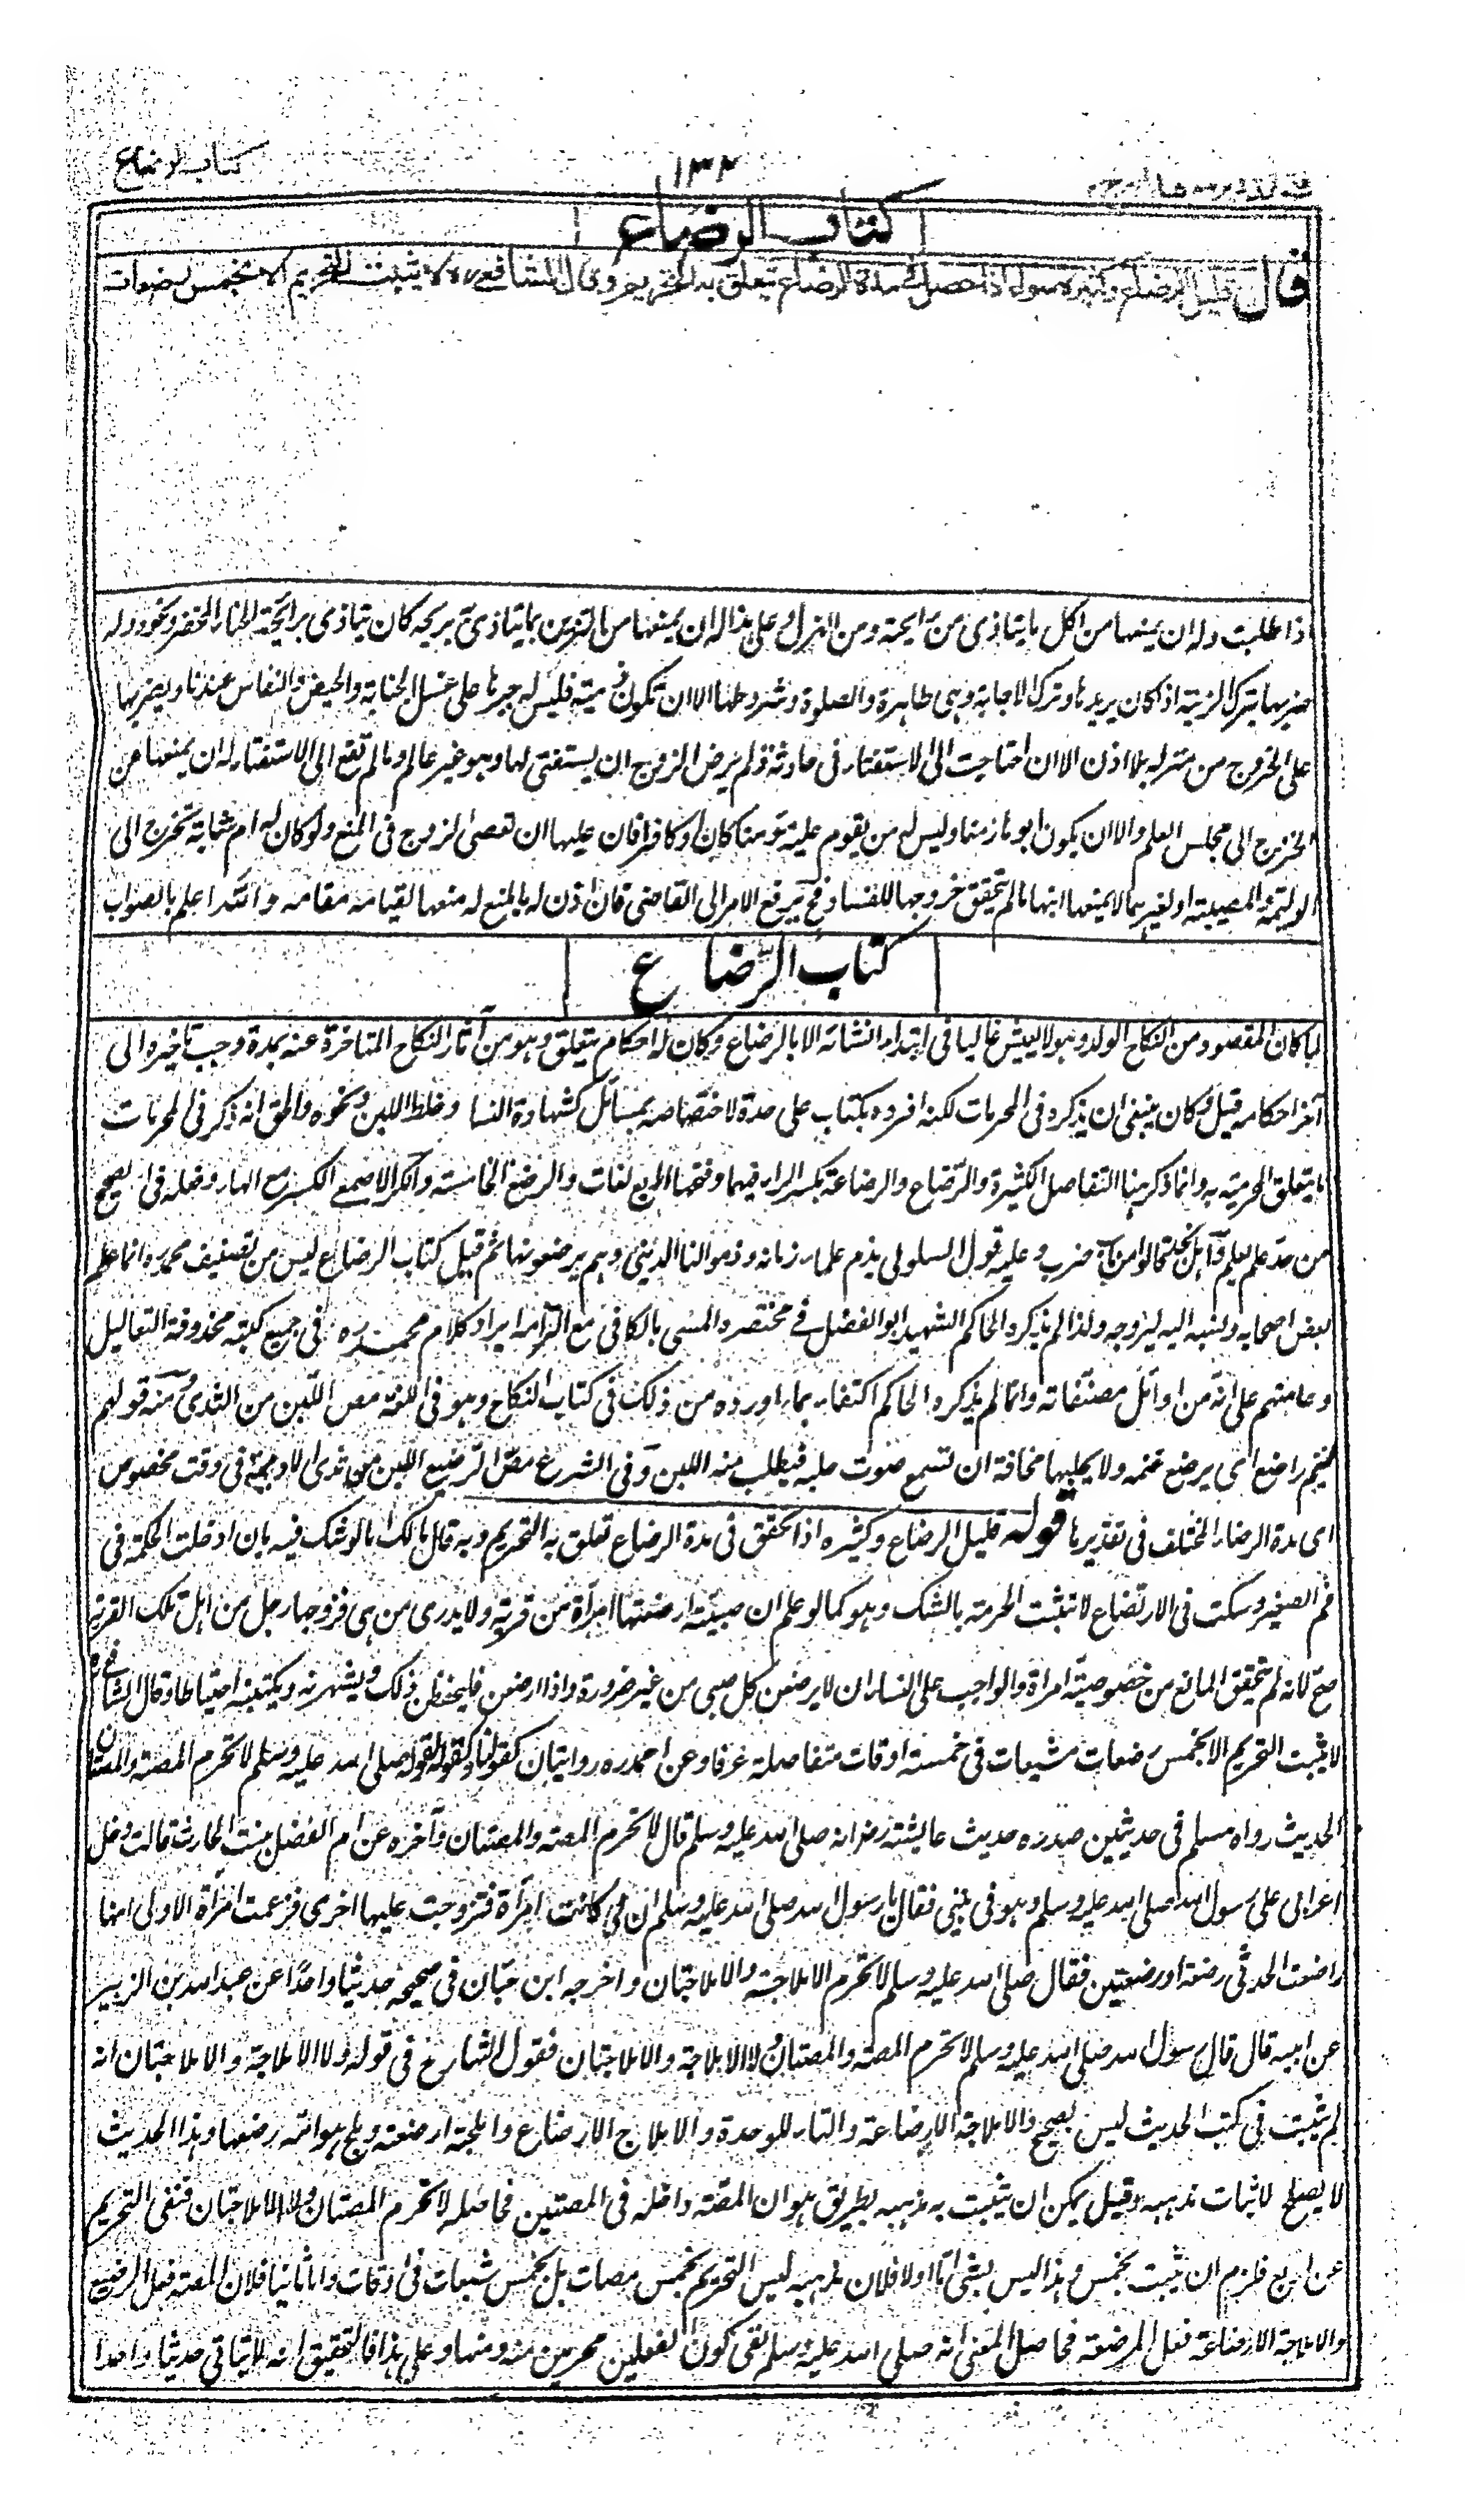 كتاب الرضاع
١٣٢
كتاب الرضاع
قال قليل الرضاع وكثيره سواء اذا حصل فى مدة الرضاع يتعلق به التحريم وقال الشافعى ره لا يثبت التحريم الا بخمس رضعات
اذا طلبت وله ان يمنعها من اكل ما يتاذى من رايحته ومن الغزل وعلى هذا له ان يمنعها من التزين بما يتاذى بريحه كان يتاذى برائحة الحناء المخضر ونحوه وله
ضربها بترك الزينة اذا كان يريدها وترك الاجابة وهى طاهرة والصلوة وشروطها الا ان تكون ذمية فليس له جبرها على غسل الجنابة والحيض والنفاس عندنا ويضربها
على الخروج من منزله بلا اذن الا ان احتاجت الى الاستفتاء فى حادثة ولم يرض الزوج ان يستفتى لها وهو غير عالم وما لم تقع الى الاستفتاء له ان يمنعها عن
الخروج الى مجلس العلم والا ان يكون ابوها زمنا وليس له من يقوم عليه مؤمنا كان او كافرا فان عليها ان تعصى الزوج فى المنع ولو كان له ام شابة تخرج الى
الوليمة والمصيبة او لغيرهما لا يمنعها ابنها ما لم يتحقق خروجها للفساد فح يرفع الامر الى القاضى فان اذن له بالمنع له منعها لقيامه مقامه والله اعلم بالصواب
كتاب الرَّضاع
لما كان المقصود من النكاح الولد وهو لا يعيش غالبا فى ابتداء انشائه الا بالرضاع وكان له احكام يتعلق وهو من آثار النكاح المتاخرة عنه بمدة وجب تاخيره الى
آخر احكامه قيل وكان ينبغى ان يذكره فى المحرمات لكنه افرده بكتاب على حدة لاختصاصه بمسائل كشهادة النسا وخلط اللبن ونحوه والحق انه ذكر فى المحرمات
ما يتعلق المحرمية به وانما ذكر هنا التفاصيل الكثيرة والرضاع والرضاعة بكسر الراء فيهما وفتحها اربع لغات والرضع الخامسة وانكر الاصمعى الكسر مع الهاء وفعله فى الفصيح
من حد علم يعلم واهل نجد قالوا من باب ضرب وعليه قول السلولى يذم علماء زمانه وذموا لنا الدنيا وهم يرضعونها ثم قيل كتاب الرضاع ليس من تصنيف محمد ره انما عمله
بعض اصحابه ونسبه اليه ليروجه ولذا لم يذكره الحاكم الشهيد ابو الفضل فى مختصره المسمى بالكافى مع التزامه ايراد كلام محمد ره فى جميع كتبه محذوفة التعاليل
وعامتهم على انه من اوائل مصنفاته وانما لم يذكره الحاكم اكتفاء بما اورده من ذلك فى كتاب النكاح وهو فى اللغة مص اللبن من الثدى ومنه قولهم
لئيم راضع اى يرضع غنمه ولا يحلبها مخافة ان تسمع صوت حلبه فيطلب منه اللبن وفى الشرع مص الرضيع اللبن من ثدى الآدمية فى وقت مخصوص
اى مدة الرضاع المختلف فى تقديرها قوله قليل الرضاع وكثيره اذا تحقق فى مدة الرضاع تعلق به التحريم وبه قال مالك اما لو شك فيه بان ادخلت الحلمة فى
فم الصغير وسكت فى الارتضاع لا تثبت الحرمة بالشك وهو كما لو علم ان صبية ارضعتها امرأة من قرية ولا يدرى من هى فزوجها رجل من اهل تلك القرية
صح لانه لم يتحقق المانع من خصوصية امراة والواجب على النساء ان لا يرضعن كل صبى من غير ضرورة واذا ارضعن فليحفظن ذلك ويشهرنه ويكتبنه احتياطا وقال الشافعى ره
لا يثبت التحريم الا بخمس رضعات مشبعات فى خمسة اوقات متفاصلة عرفا وعن احمد ره روايتان كقولنا وكقوله لقوله صلى الله عليه وسلم لا تحرم المصة والمصتان
الحديث رواه مسلم فى حديثين صدره حديث عايشة رض انه صلى الله عليه وسلم قال لا تحرم المصة والمصتان وآخره عن ام الفضل بنت الحارث قالت دخل
اعرابى على رسول الله صلى الله عليه وسلم وهو فى بيتى فقال يا رسول الله صلى الله عليه وسلم ان لى كانت امرأة فتزوجت عليها اخرى فزعمت امرأة الاولى انها
ارضعت الحدثى رضعة او رضعتين فقال صلى الله عليه وسلم لا تحرم الاملاجة والاملاجتان واخرجه ابن حبان فى صحيحه حديثا واحدا عن عبد الله بن الزبير
عن ابيه قال قال رسول الله صلى الله عليه وسلم لا تحرم المصة والمصتان ولا الاملاجة والاملاجتان فقول الشارح فى قوله ولا الاملاجة والاملاجتان انه
لم يثبت فى كتب الحديث ليس بصحيح والاملاجة الارضاعة والتاء للوحدة والاملاج الارضاع واملجته ارضعته وملج هو امه رضعها وهذا الحديث
لا يصلح لاثبات مذهبه وقيل يمكن ان يثبت به مذهبه بطريق هو ان المصة داخلة فى المصتين فحاصله لا تحرم المصتان ولا الاملاجتان فنفى التحريم
عن اربع فلزم ان يثبت بخمس وهذا ليس بشئ اما اولا فلان مذهبه ليس التحريم بخمس مصات بل بخمس شبعات فى اوقات واما ثانيا فلان المصة فعل الرضيع
والاملاجة الارضاعة فعل المرضعة فحاصل المعنى انه صلى الله عليه وسلم نفى كون الفعلين محرمين منه ومنها وعلى هذا فالتحقيق انه لا يتاتى حديثا واحدا